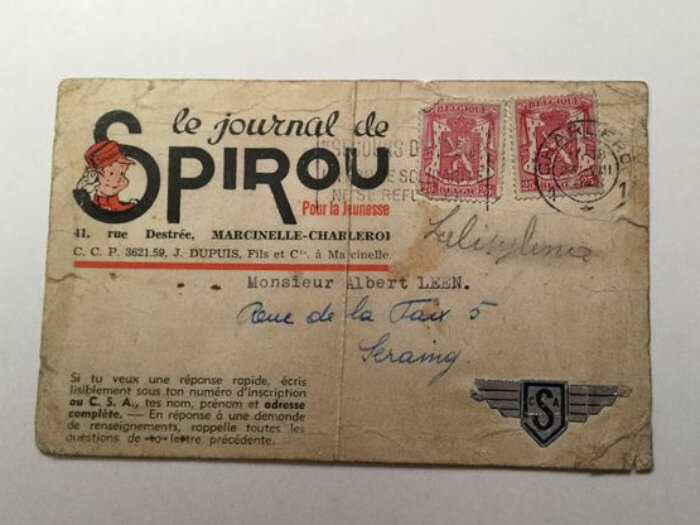 le journal de
SPIROU
Pour la Jeunesse
41, rue Destrée, MARCINELLE-CHARLEROI
C. C. P. 3621.59, J. DUPUIS, Fils et Cie, à Marcinelle.
BELGIQUE
25 BELGIE 25
BELGIQUE
CHARLEROI
1
Monsieur Albert LEEN.
Rue de la Paix 5
Seraing.
Si tu veux une réponse rapide, écris
lisiblement sous ton numéro d'inscription
au C. S. A., tes nom, prénom et adresse
complète. — En réponse à une demande
de renseignements, rappelle toutes les
questions de to lettre précédente.
C S A